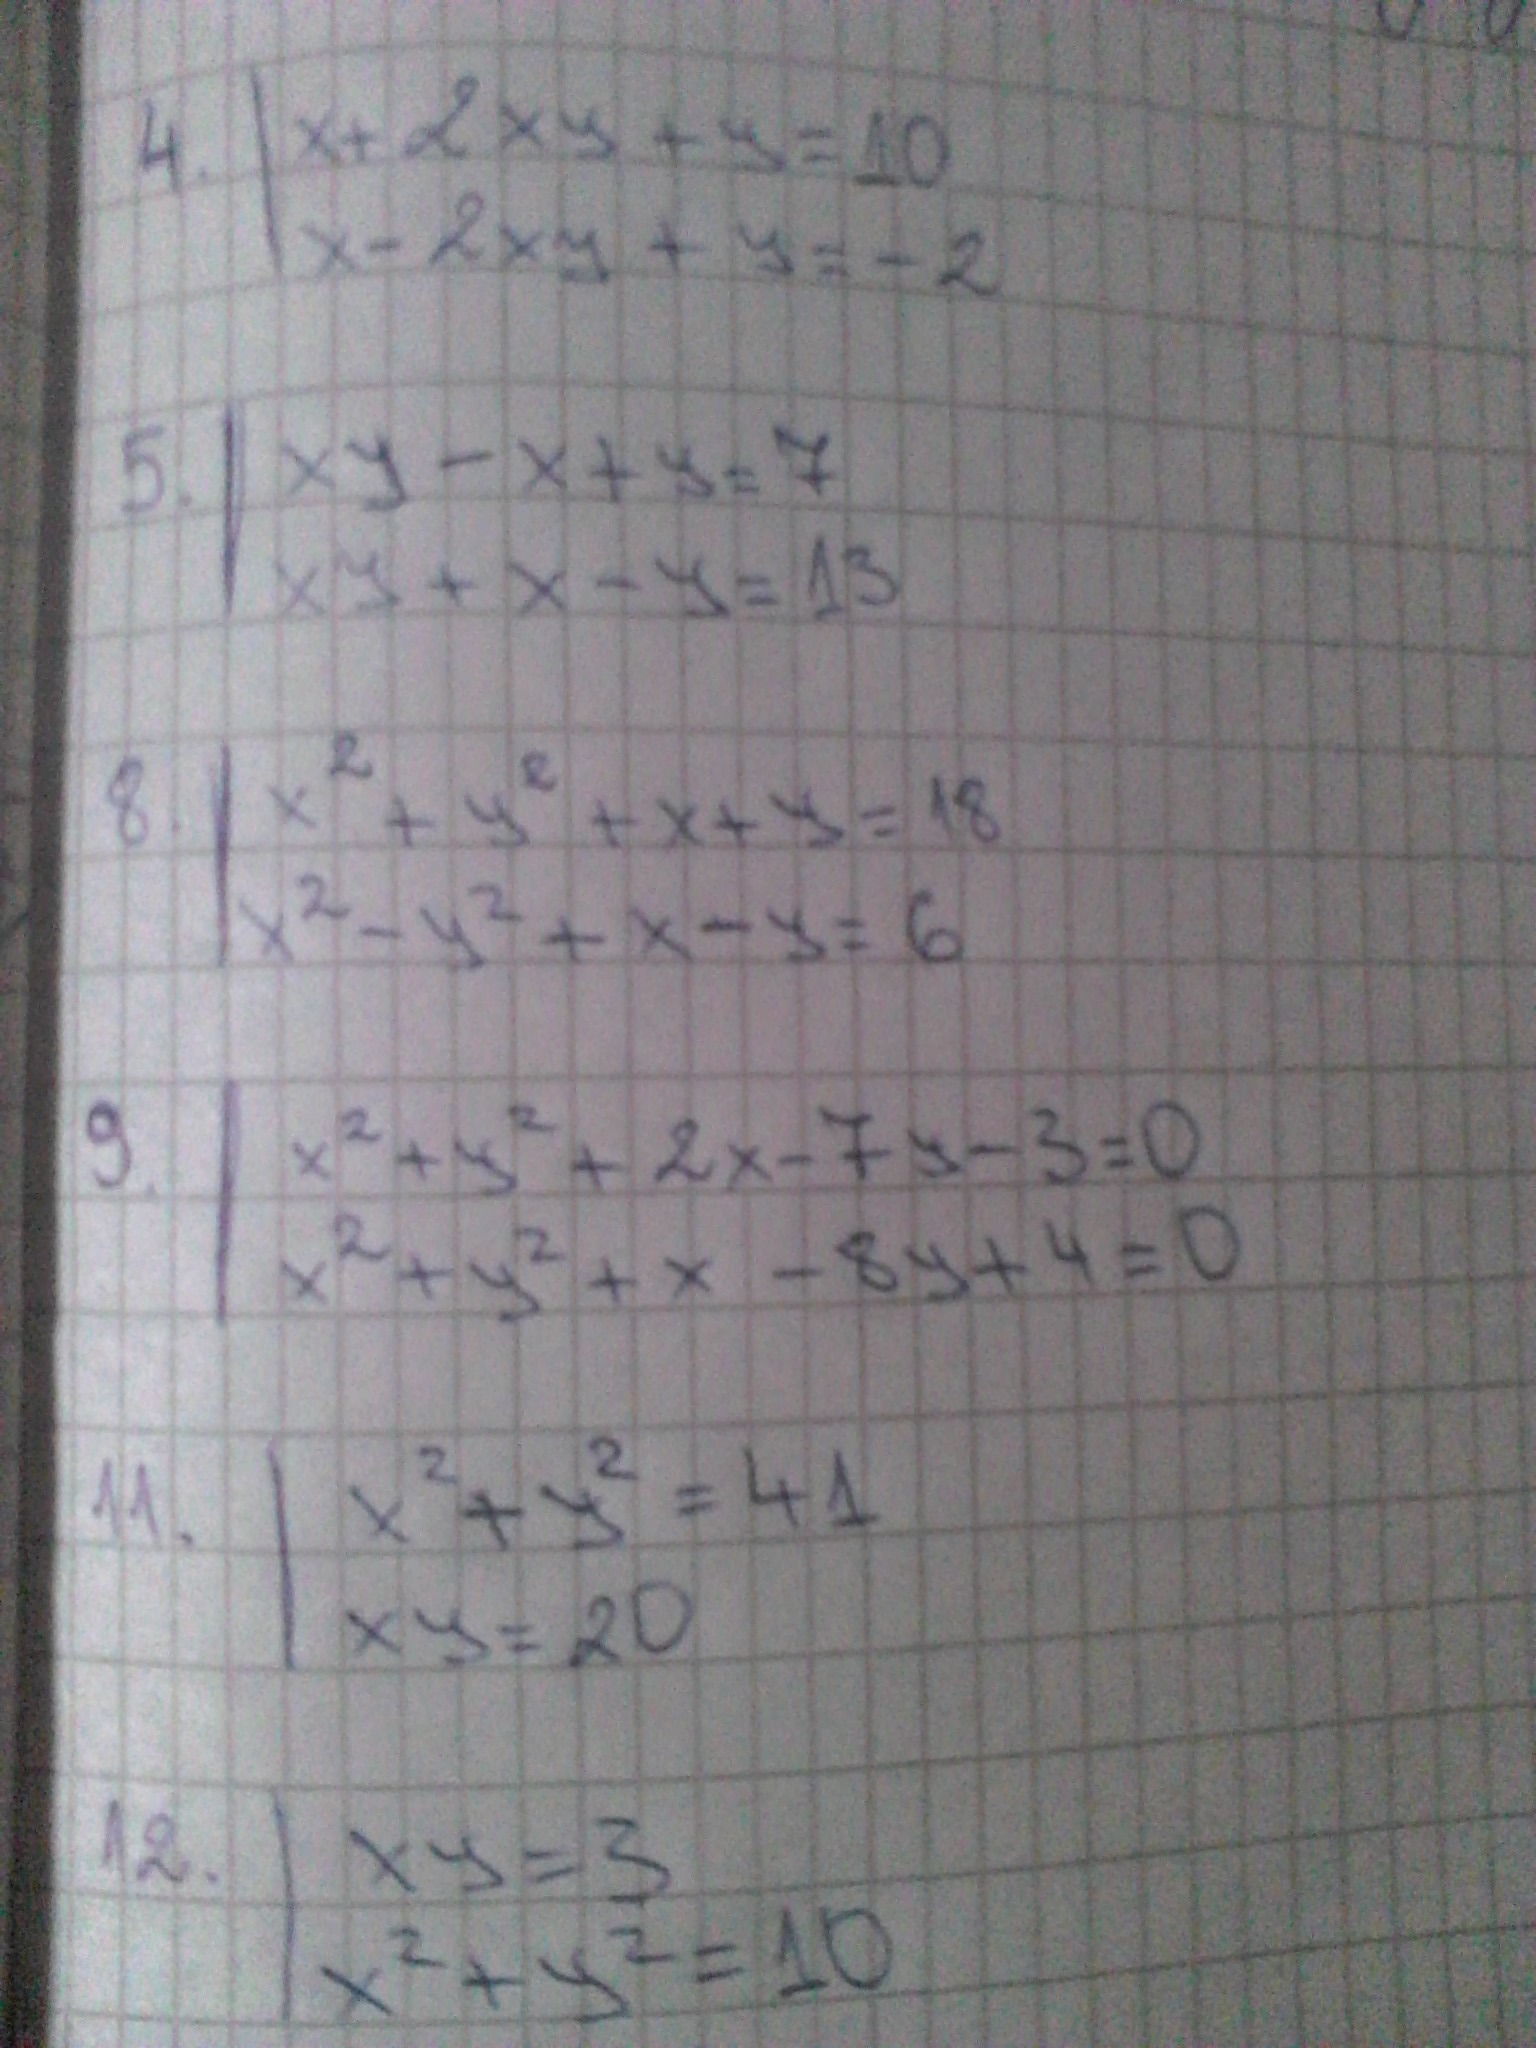 4. x+2xy+y=10
x-2xy+y=-2
5. xy-x+y=7
xy+x-y=13
8. x²+y²+x+y=18
x²-y²+x-y=6
9. x²+y²+2x-7y-3=0
x²+y²+x-8y+4=0
11. x²+y²=41
xy=20
12. xy=3
x²+y²=10